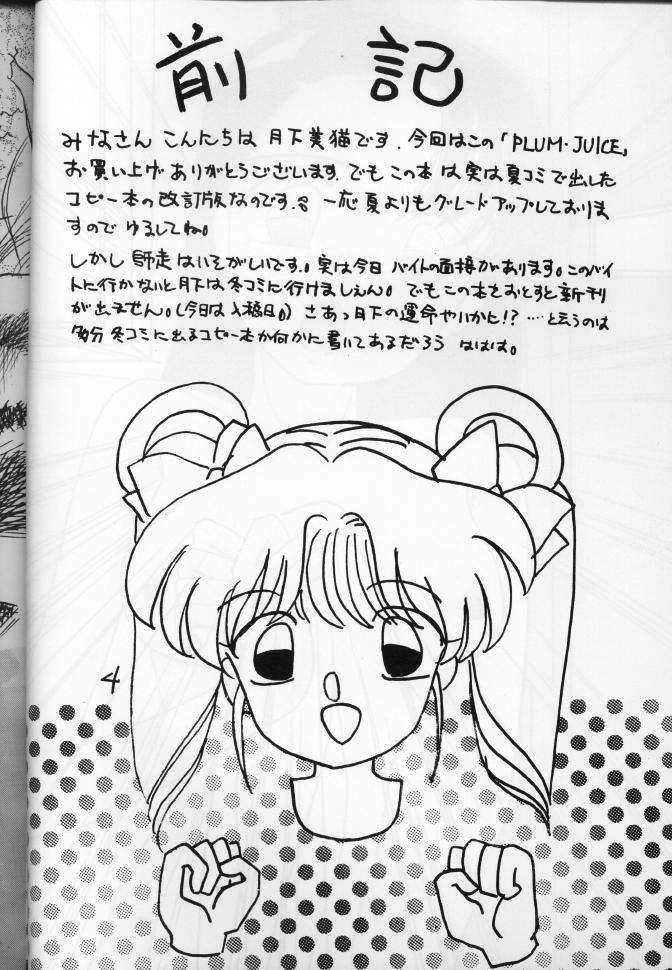 前 記
みなさん こんにちは 月下美猫です. 今回はこの「PLUM・JUICE」
お買い上げ ありがとうございます. でも この本 は 実は夏コミで出した
コピー本の改訂版なのです. 一応 夏よりも グレードアップしておりま
すので ゆるしてね。
しかし 師走 はいそがしいです。実は今日 バイトの面接があります。このバイ
トに行かないと月下は冬コミに行けましぇん。でもこの本をおとすと新刊
が出ません。(今日は入稿日。) さあっ月下の運命やいかに!? ‥‥と云うのは
多分 冬コミに出るコピー本か何かに書いてあるだろう ははは。
4